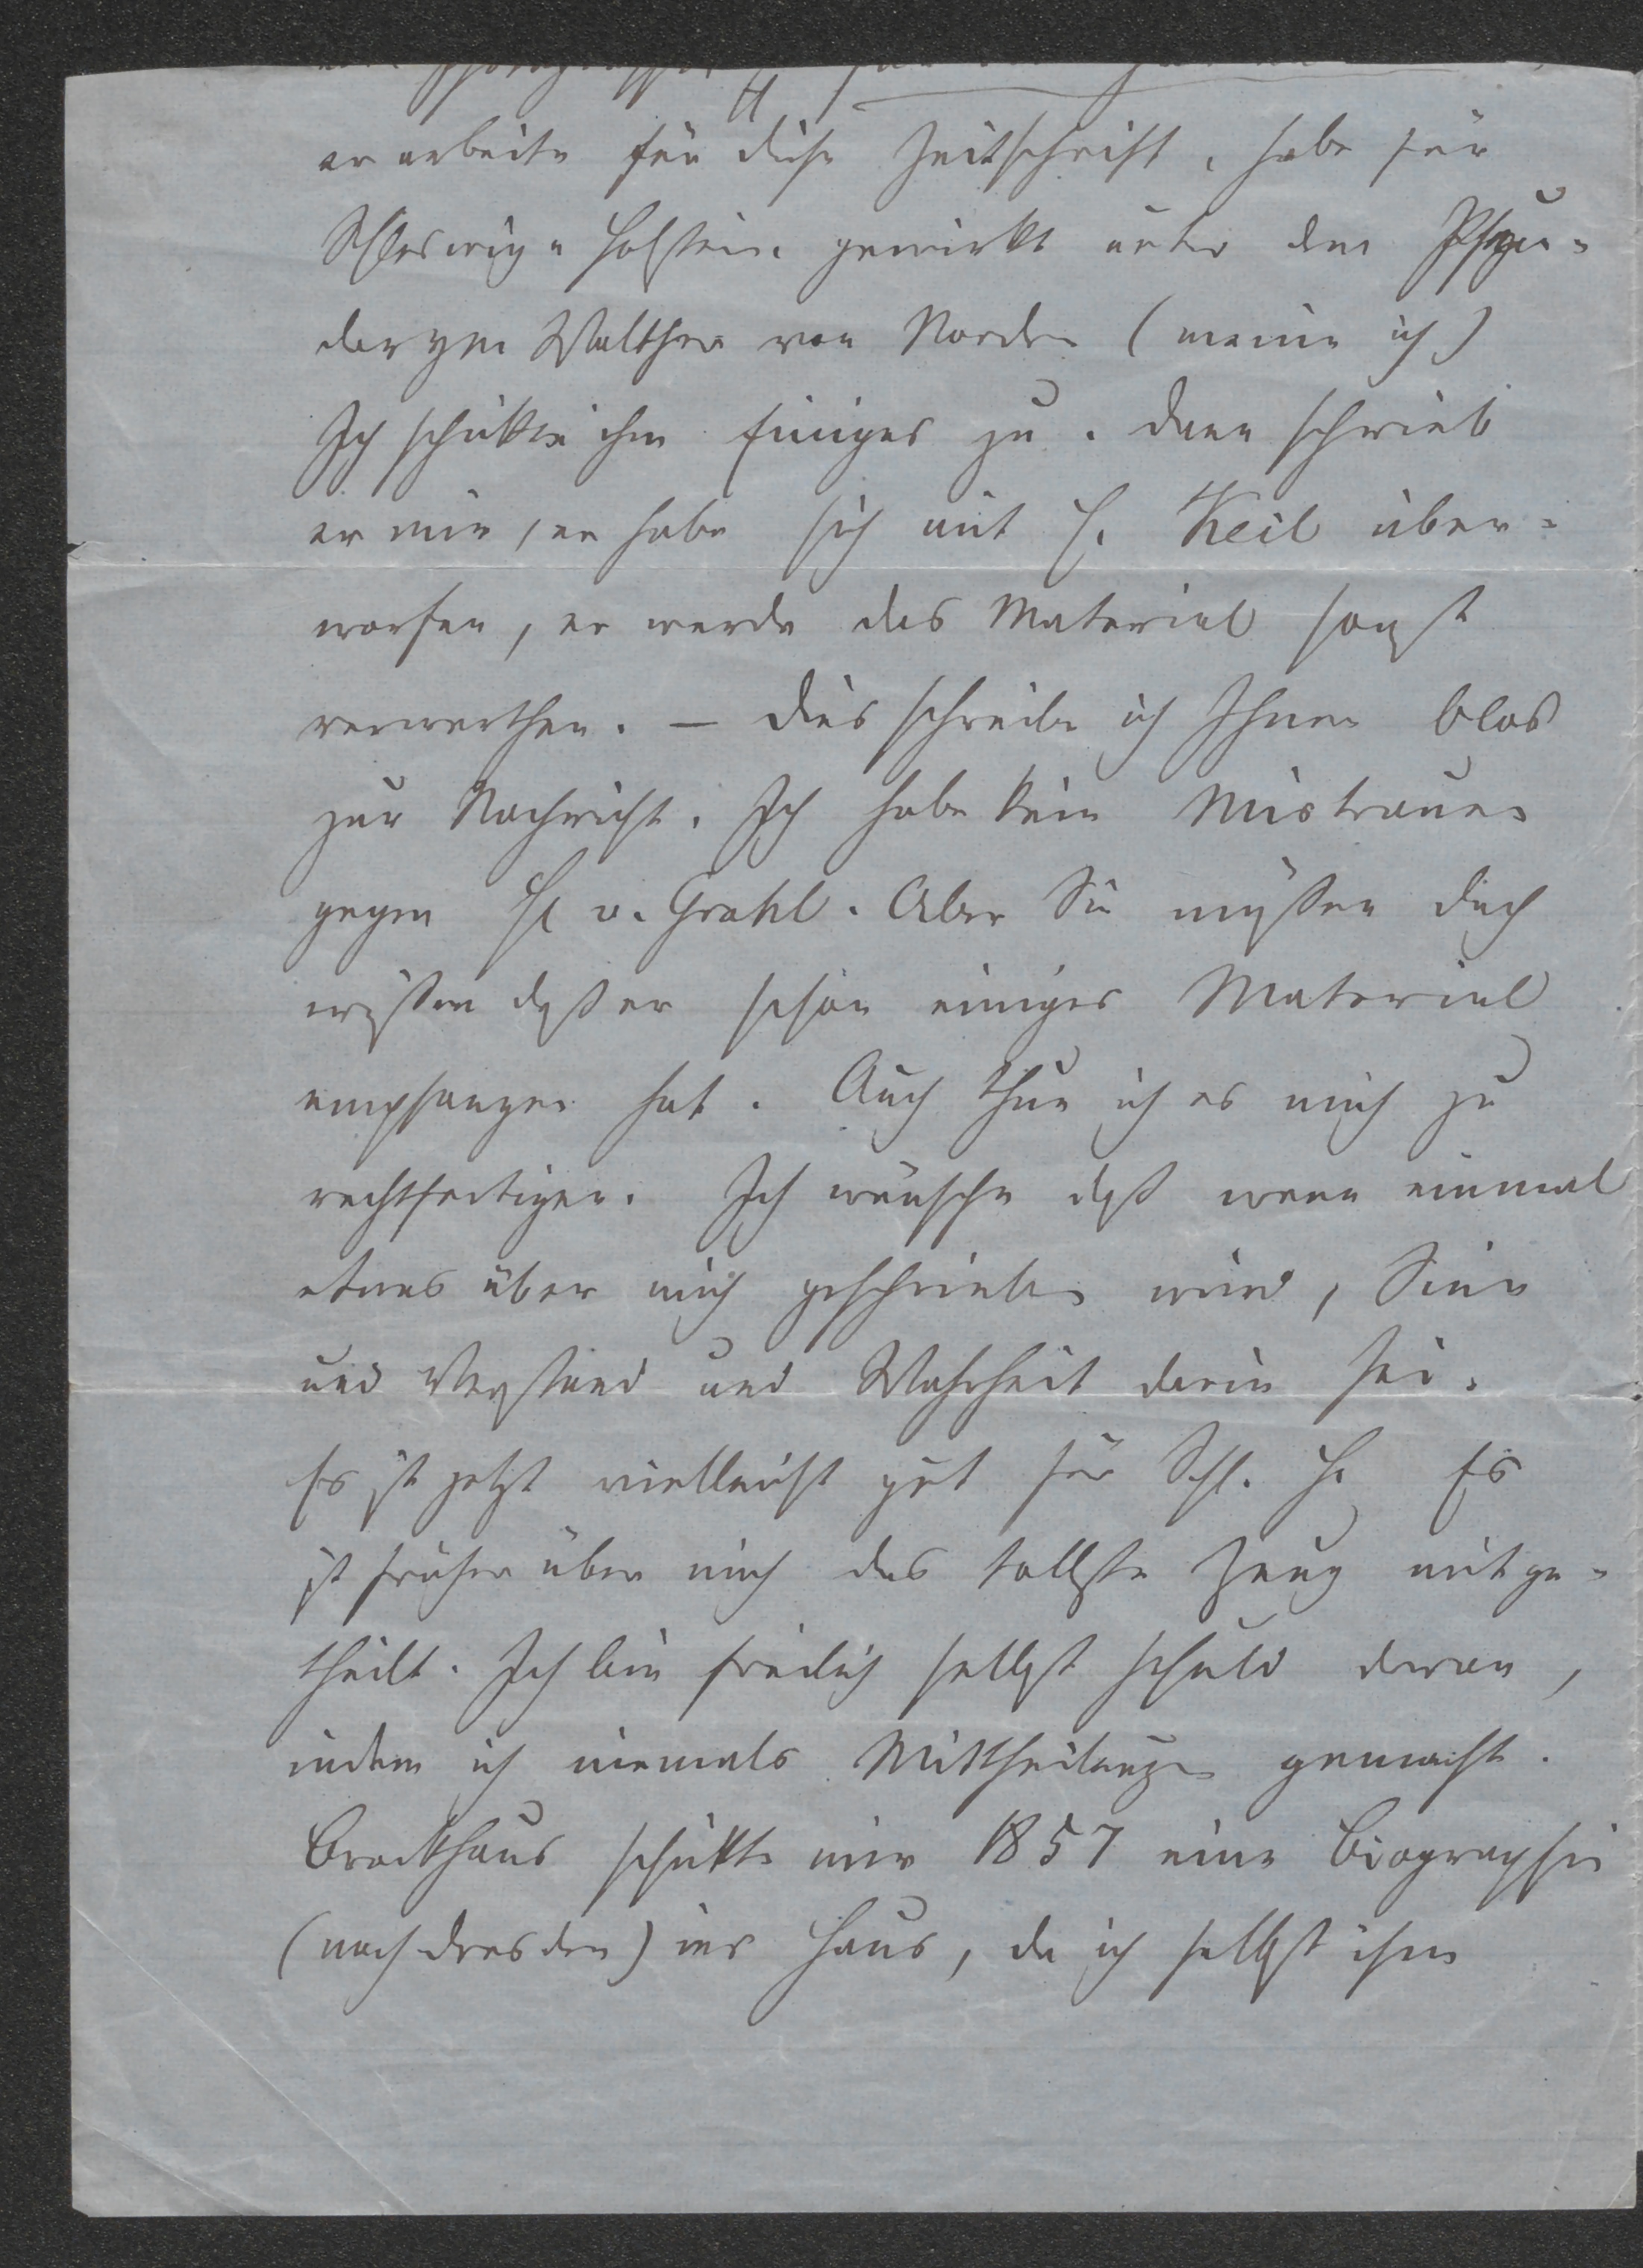 er arbeite für diese Zeitschrift, habe für
Schleswig-Holstein gewirkt unter dem Pseu-
donym Walther von Norden (meine ich)
Ich schickte ihm Einiges zu. Dann schrieb
er mir, er habe sich mit H. Keil über-
worfen, er werde das Material sonst
verwerthen. — Dies schreibe ich Ihnen blos
zur Nachricht. Ich habe kein Mistrauen
gegen H v. Grahl. Aber Sie müßen doch
wißen daß er schon einiges Material
empfangen hat. Auch thue ich es mich zu
rechtfertigen. Ich wünsche daß wenn einmal
etwas über mich geschrieben wird, Sinn
und Verstand und Wahrheit darin sei.
Es ist jetzt vielleicht gut für Schl. H. Es
ist früher über mich das tollste Zeug mitge-
theilt. Ich bin freilich selbst schuld daran,
indem ich niemals Mittheilungen gemacht.
Brockhaus schickte mir 1857 eine Biographie
(nach Dresden) ins Haus, da ich selbst ihm